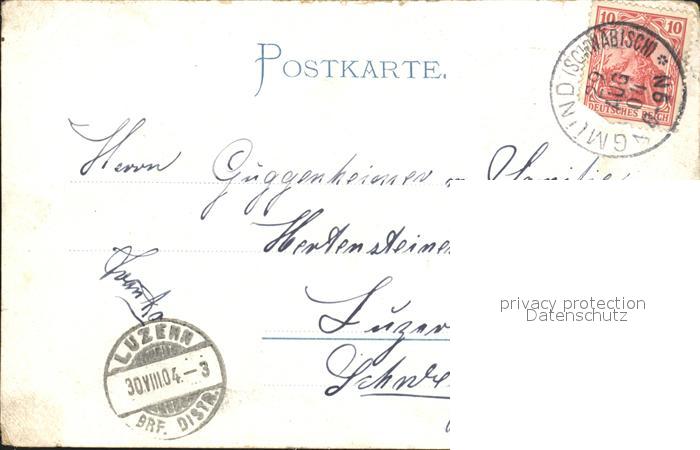 POSTKARTE.
10 10
DEUTSCHES REICH
GMÜND (SCHWÄBISCH) *
29
AUG
04
N
Herrn Guggenheimer Familie
Hertensteiner
Luzer
Schwe
LUZERN
30.VIII.04.-3
BRF. DISTR.
privacy protection
Datenschutz